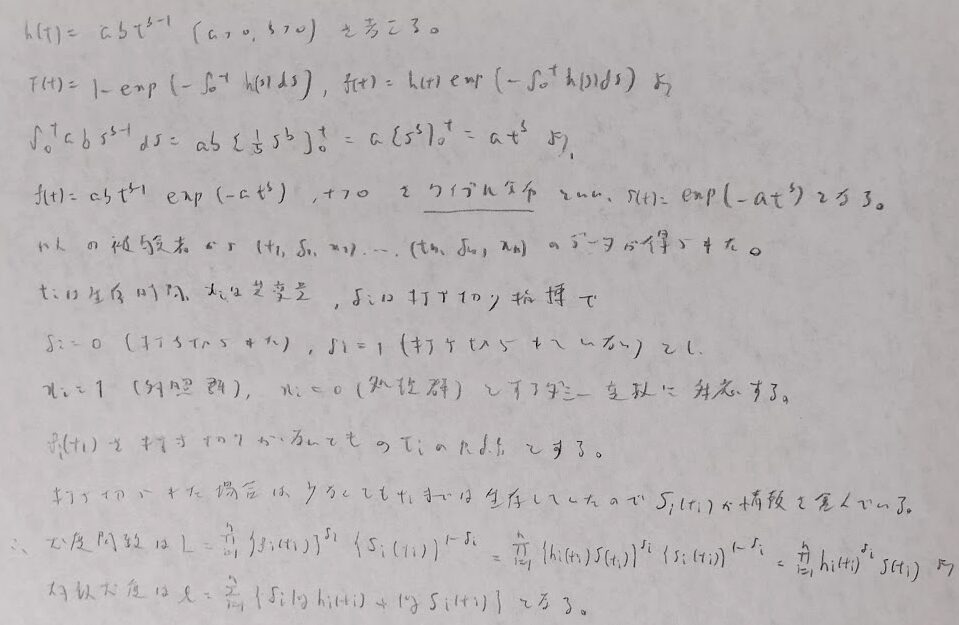 h(t) = abt^{b-1} (a>0, b>0) を考える。
F(t) = 1-exp(-∫₀ᵗ h(s)ds), f(t) = h(t) exp(-∫₀ᵗ h(s)ds) より
∫₀ᵗ ab s^{b-1} ds = ab{1/b s^b}₀ᵗ = a{s^b}₀ᵗ = at^b より,
f(t) = abt^{b-1} exp(-at^b), t>0 をワイブル分布といい、S(t) = exp(-at^b) となる。
n人の被験者から (t₁, δ₁, x₁) ... (tₙ, δₙ, xₙ) のデータが得られた。
tᵢは生存時間、xᵢは共変量, δᵢは打ち切り指標で
δᵢ=0 (打ち切られた), δᵢ=1 (打ち切られていない) とし、
xᵢ=1 (対照群), xᵢ=0 (処置群) とするダミー変数に対応する。
fᵢ(tᵢ) を打ち切りがないもののtᵢのp.d.fとする。
打ち切られた場合は少なくともtᵢまでは生存していたのでSᵢ(tᵢ)が情報を含んでいる。
∴ 尤度関数は L = ∏_{i=1}^{n} {fᵢ(tᵢ)}^{δᵢ} {Sᵢ(tᵢ)}^{1-δᵢ} = ∏_{i=1}^{n} {hᵢ(tᵢ)S(tᵢ)}^{δᵢ} {Sᵢ(tᵢ)}^{1-δᵢ} = ∏_{i=1}^{n} hᵢ(tᵢ)^{δᵢ} S(tᵢ) より
対数尤度は ℓ = ∑_{i=1}^{n} {δᵢ log hᵢ(tᵢ) + log Sᵢ(tᵢ)} となる。